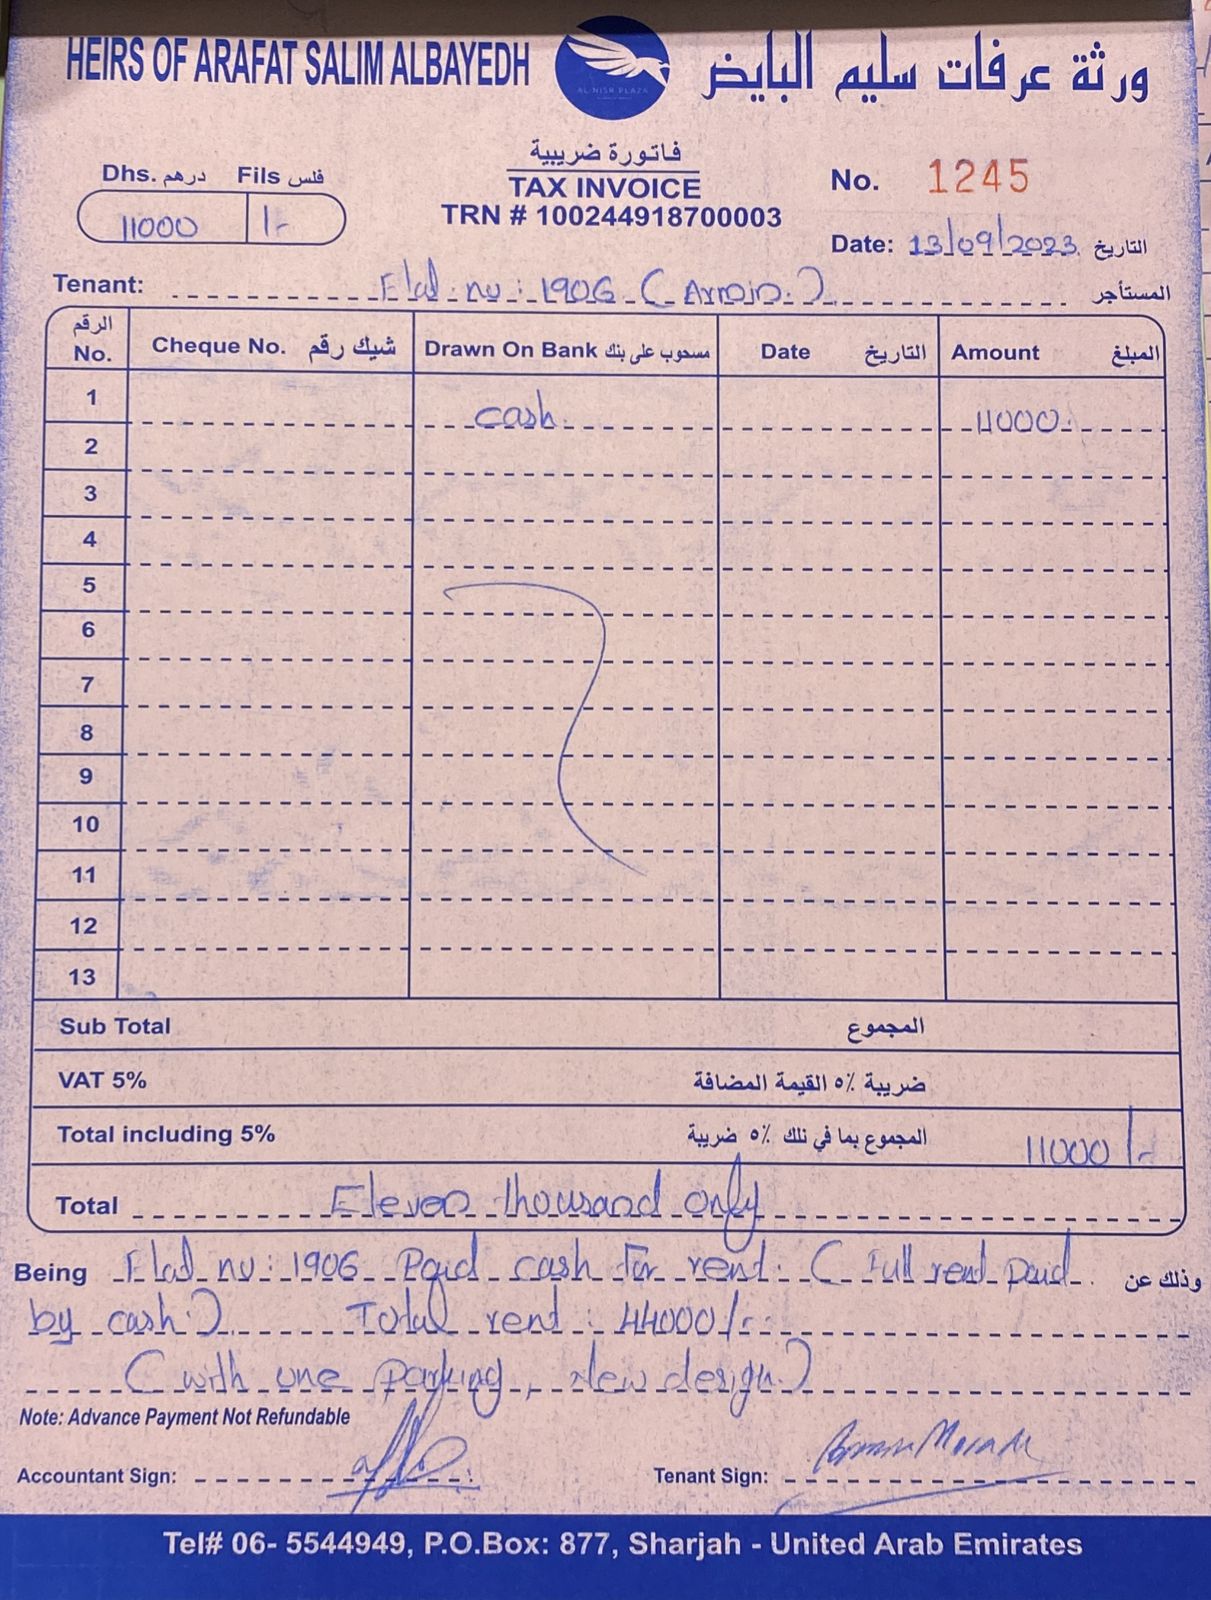 HEIRS OF ARAFAT SALIM ALBAYEDH
ورثة عرفات سليم البايض
AL NISR PLAZA
فاتورة ضريبية
TAX INVOICE
TRN # 100244918700003
Dhs. درهم Fils فلس
11000 /-
No. 1245
Date: 13/09/2023 التاريخ
Tenant: Flat no: 1906 (Armin.) المستأجر
الرقم No. Cheque No. شيك رقم Drawn On Bank مسحوب على بنك Date التاريخ Amount المبلغ
1 cash. 11000.
2
3
4
5
6
7
8
9
10
11
12
13
Sub Total المجموع
VAT 5% ضريبة ٥٪ القيمة المضافة
Total including 5% المجموع بما في نلك ٥٪ ضريبة 11000/-
Total Eleven thousand only
Being Flat no: 1906 Paid cash for rent. (Full rent paid وذلك عن
by cash.) Total rent: 44000/-
(with one parking, New design.)
Note: Advance Payment Not Refundable
Accountant Sign:
Tenant Sign:
Tel# 06- 5544949, P.O.Box: 877, Sharjah - United Arab Emirates